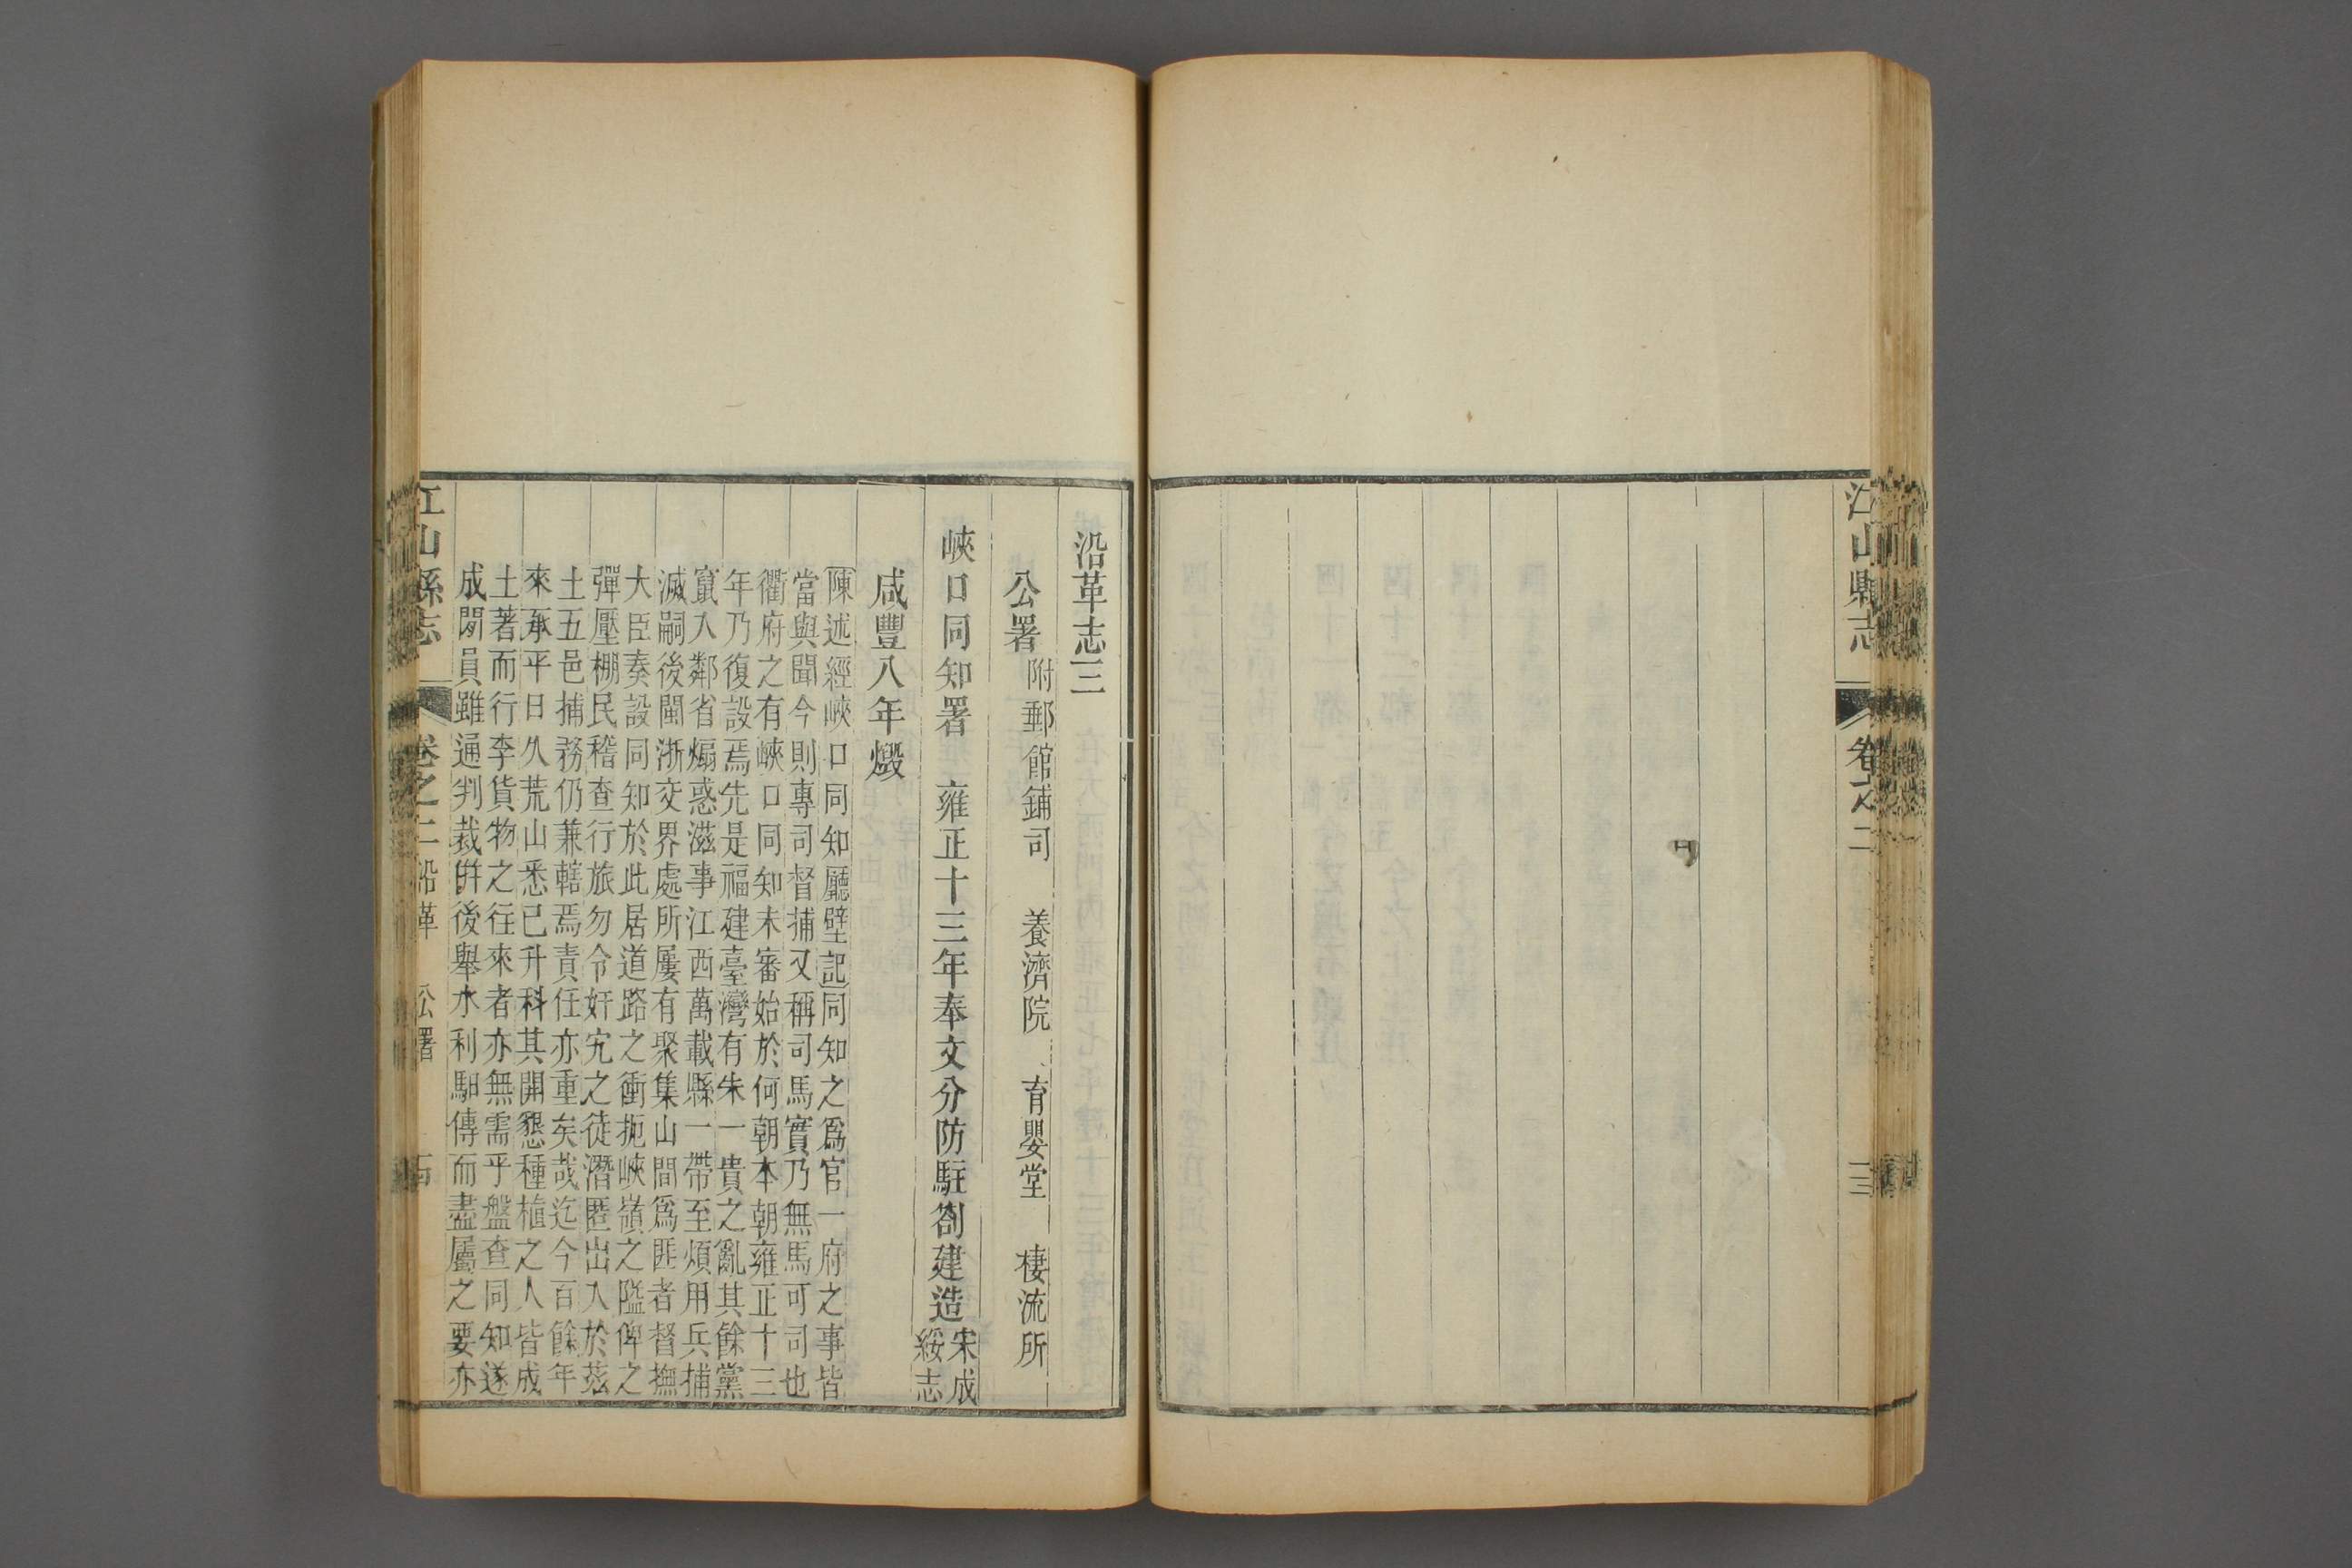 江山縣志
卷之二
三
沿革志三
公署 附郵館鋪司 養濟院 育嬰堂 棲流所
峽口同知署 雍正十三年奉文分防駐劄建造宋成
綏志
咸豐八年燬
陳述經峽口同知廳壁記同知之爲官一府之事皆
當與聞今則專司督捕又稱司馬實乃無馬可司也
衢府之有峽口同知未審始於何朝本朝雍正十三
年乃復設焉先是福建臺灣有朱一貴之亂其餘黨
竄入鄰省煽惑滋事江西萬載縣一帶至煩用兵捕
滅嗣後閩浙交界處所屢有聚集山間爲匪者督撫
大臣奏設同知於此居道路之衝扼峽嶺之隘俾之
彈壓棚民稽查行旅勿令奸宄之徒潛匿出入於茲
土五邑捕務仍兼轄焉責任亦重矣哉迄今百餘年
來承平日久荒山悉已升科其開懇種植之人皆成
土著而行李貨物之往來者亦無需乎盤查同知遂
成閒員雖通判裁併後舉水利馹傳而盡屬之要亦
江山縣志 卷之二沿革 公署